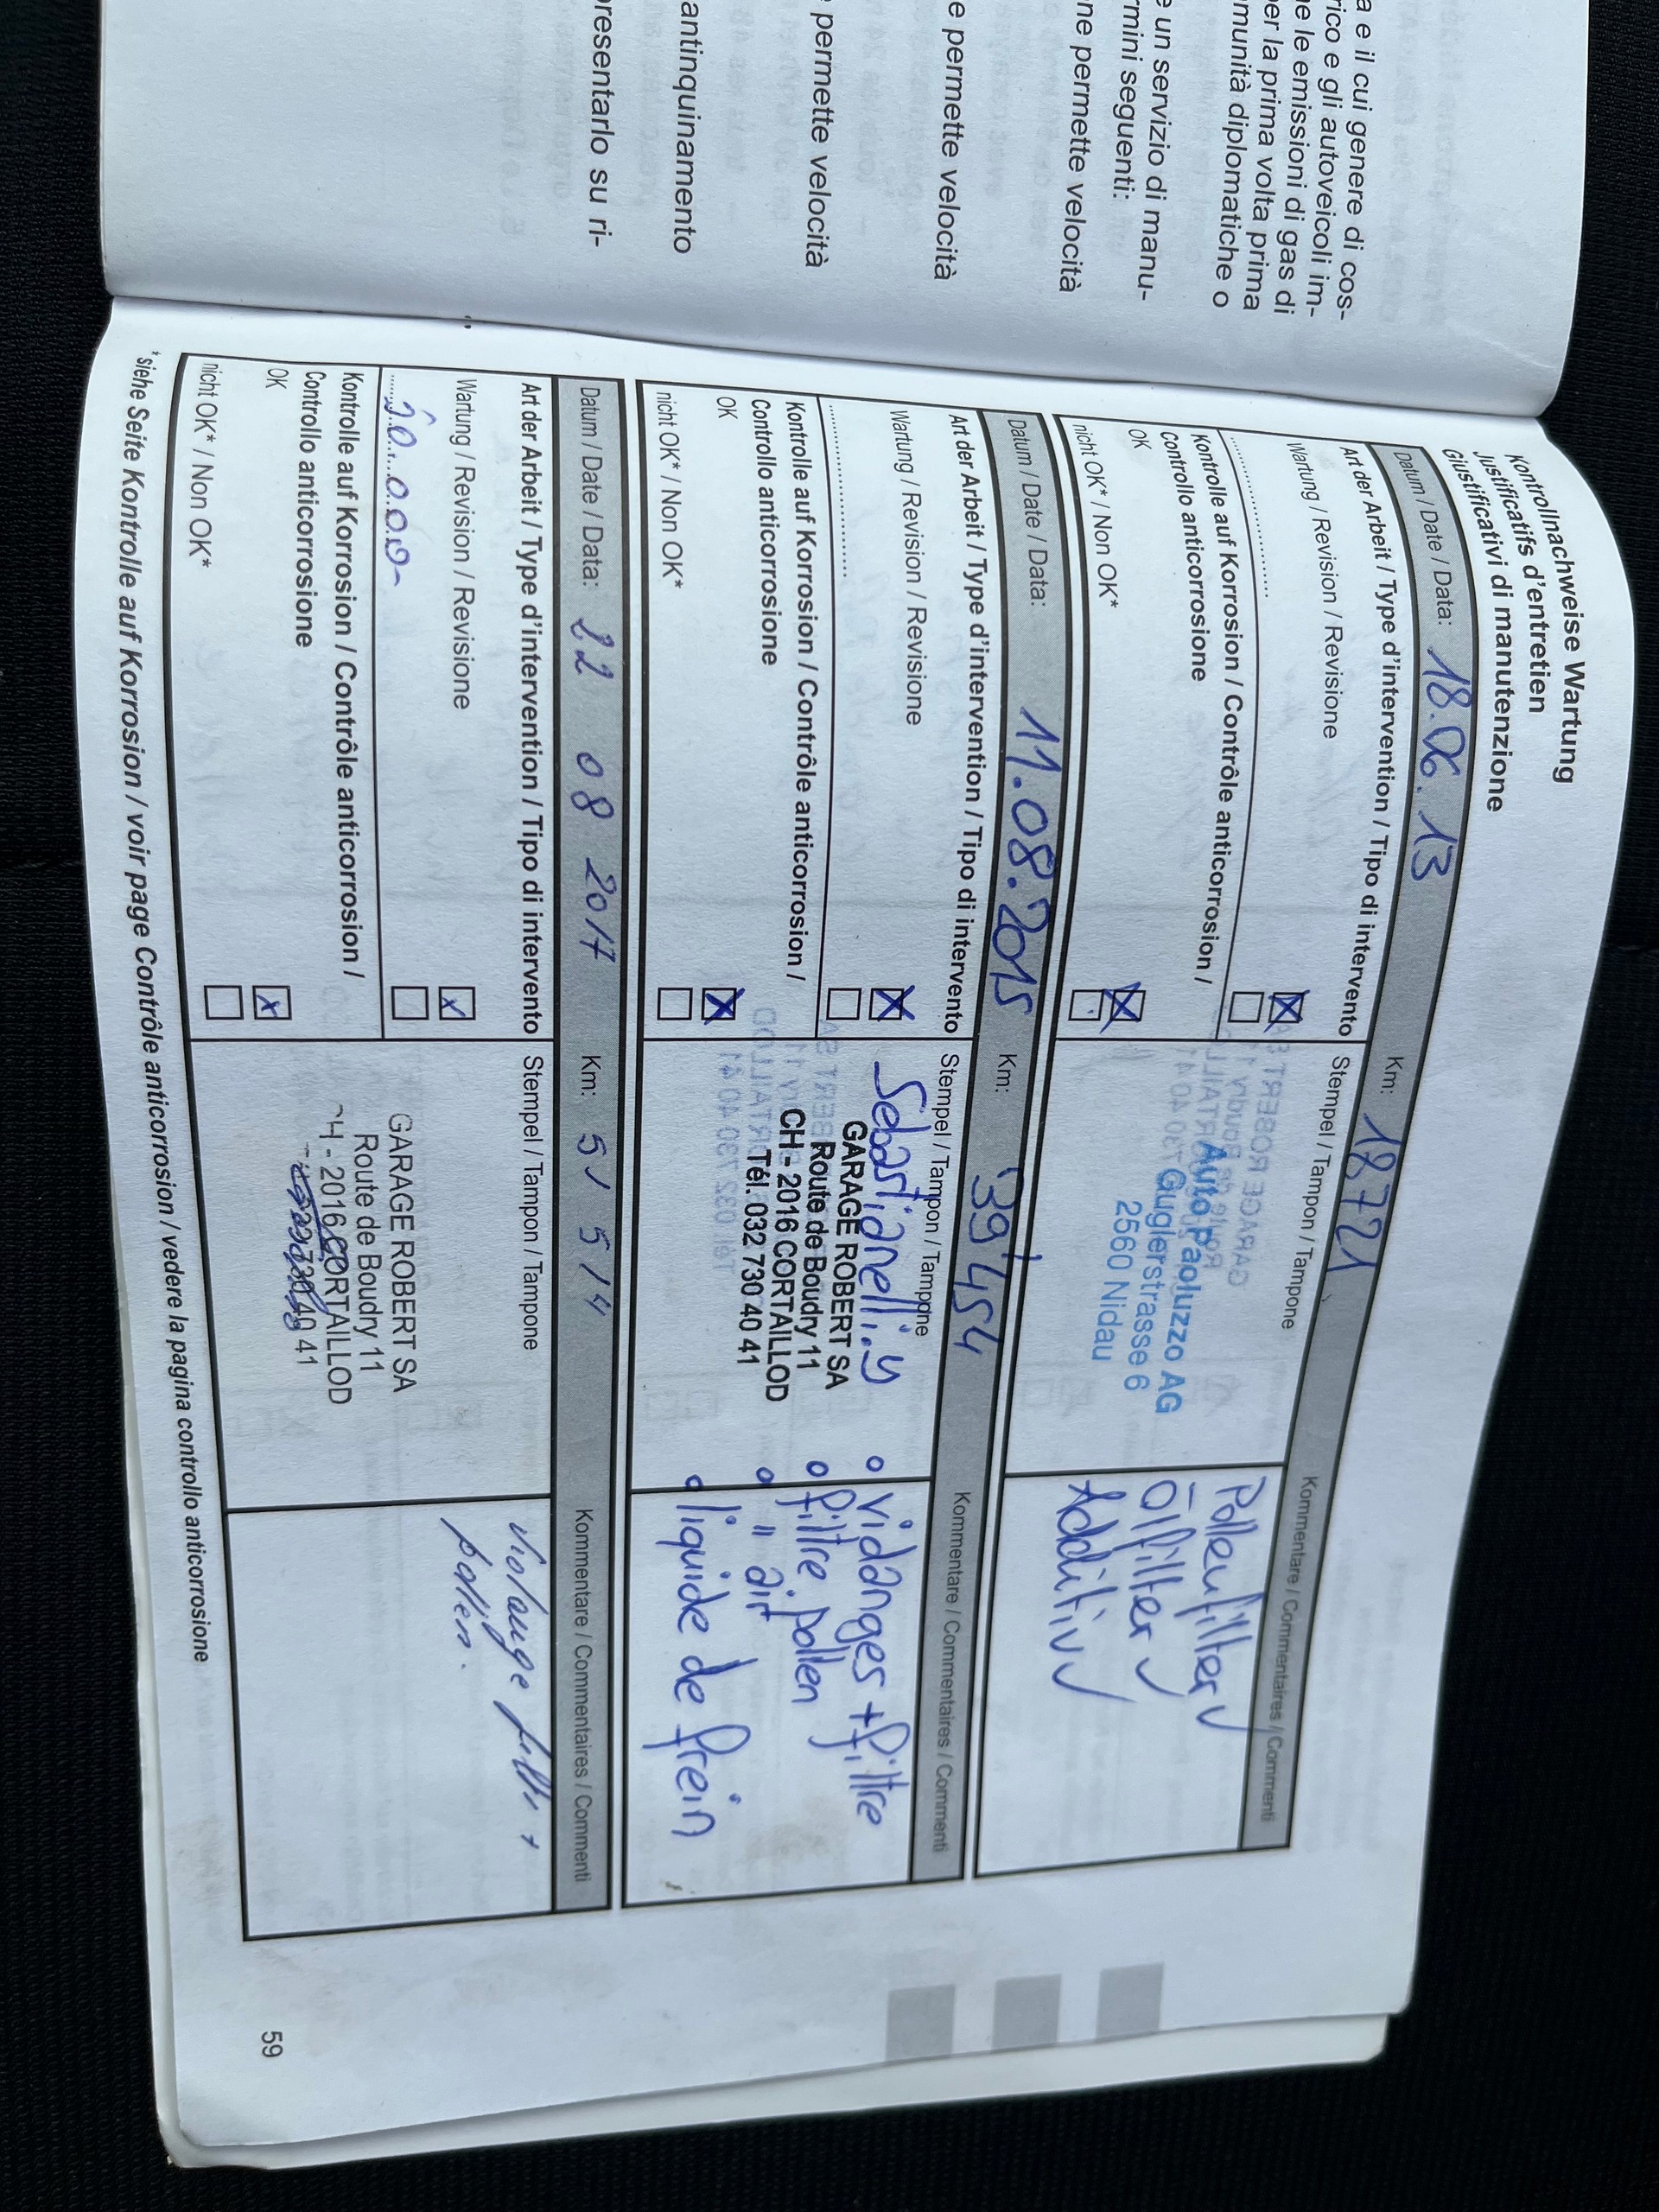 a e il cui genere di cos-
rico e gli autoveicoli im-
ne le emissioni di gas di
per la prima volta prima
munità diplomatiche o
e un servizio di manu-
rmini seguenti:
ne permette velocità
e permette velocità
permette velocità
antinquinamento
resentarlo su ri-
Kontrollnachweise Wartung
Justificatifs d'entretien
Giustificativi di manutenzione
Datum / Date / Data: 18.06.13 Km: 18721
Art der Arbeit / Type d'intervention / Tipo di intervento
Stempel / Tampon / Tampone
Kommentare / Commentaires / Commenti
Wartung / Revision / Revisione
Kontrolle auf Korrosion / Contrôle anticorrosion /
Controllo anticorrosione
OK
nicht OK* / Non OK*
Auto Paoluzzo AG
Guglerstrasse 6
2560 Nidau
Pollenfilter ✓
Ölfilter ✓
Additiv ✓
Datum / Date / Data: 11.08.2015 Km: 39'454
Art der Arbeit / Type d'intervention / Tipo di intervento
Stempel / Tampon / Tampone
Kommentare / Commentaires / Commenti
Wartung / Revision / Revisione
Kontrolle auf Korrosion / Contrôle anticorrosion /
Controllo anticorrosione
OK
nicht OK* / Non OK*
Sebastianelli.y
GARAGE ROBERT SA
Route de Boudry 11
CH - 2016 CORTAILLOD
Tél. 032 730 40 41
o vidanges + filtre
o filtre pollen
o " air
o liquide de frein
Datum / Date / Data: 22 08 2017 Km:
Art der Arbeit / Type d'intervention / Tipo di intervento
Stempel / Tampon / Tampone
Kommentare / Commentaires / Commenti
Wartung / Revision / Revisione
Kontrolle auf Korrosion / Contrôle anticorrosion /
Controllo anticorrosione
OK
nicht OK* / Non OK*
GARAGE ROBERT SA
Route de Boudry 11
CH - 2016 CORTAILLOD
730 40 41
+
pollen.
*siehe Seite Kontrolle auf Korrosion / voir page Contrôle anticorrosion / vedere la pagina controllo anticorrosione
59